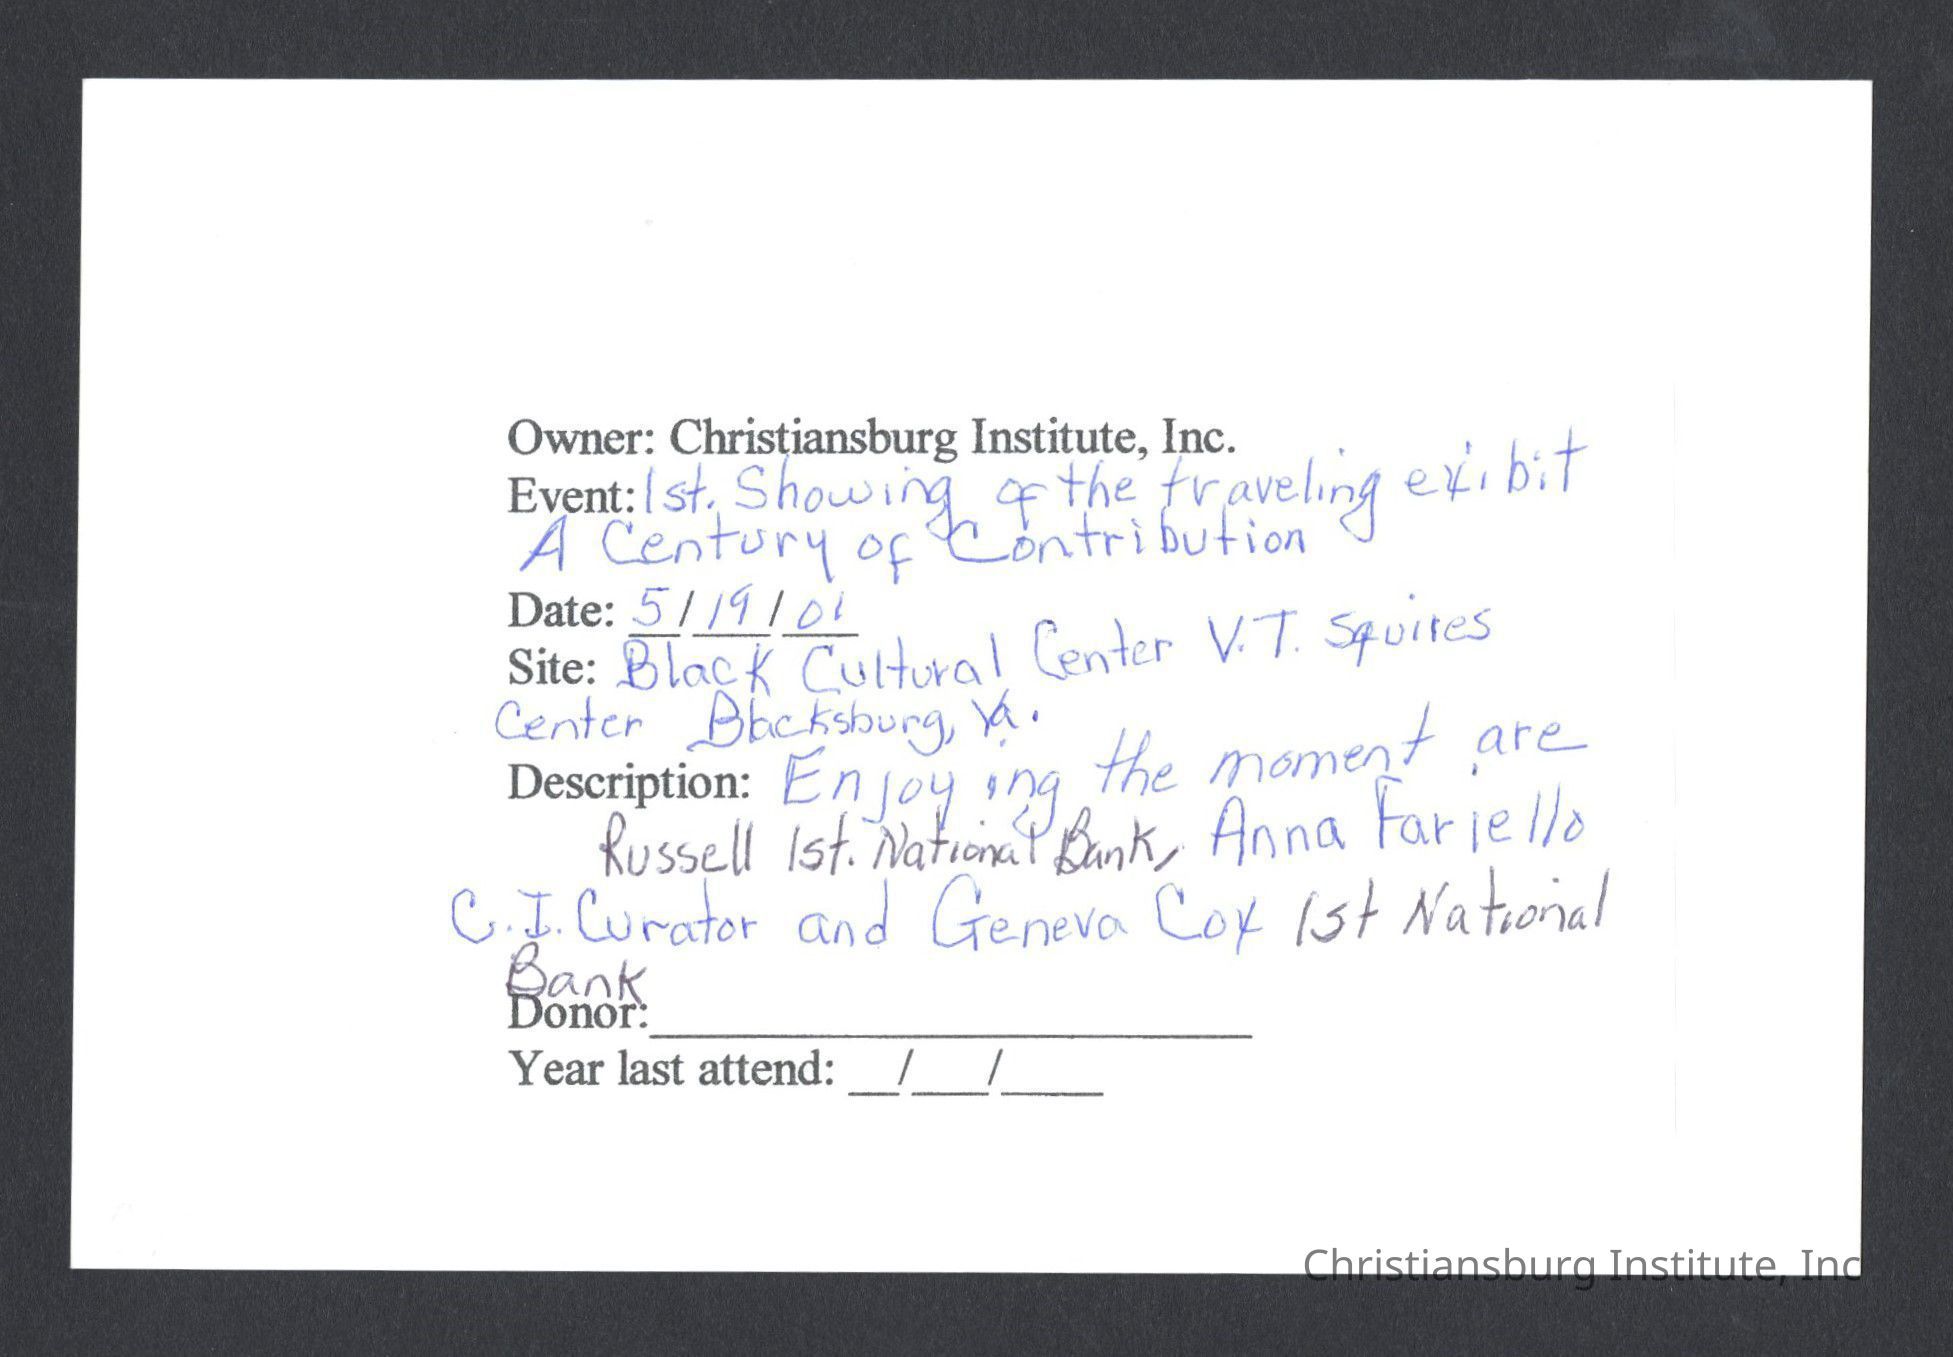 Owner: Christiansburg Institute, Inc.
Event: 1st. Showing of the traveling exibit
A Century of Contribution
Date: 5/19/01
Site: Black Cultural Center V.T. Squires
Center Blacksburg, Va.
Description: Enjoying the moment are
Russell 1st. National Bank, Anna Fariello
C.I. Curator and Geneva Cox 1st National
Bank
Donor:
Year last attend: __/___/____
Christiansburg Institute, Inc